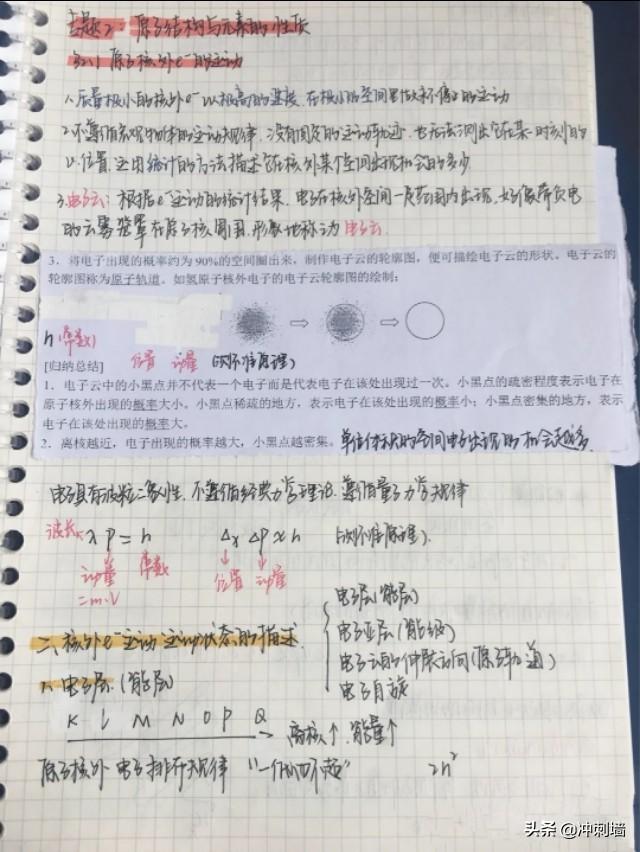 专题2：原子结构与元素的性质
2.1 原子核外e⁻的运动
1.质量极小的核外e⁻以极高的速度在极小的空间里做永不停止的运动
2.不遵循宏观物体的运动规律，没有固定的运动轨迹，也无法测出它在某一时刻的
位置，这用统计的方法描述它在核外某个空间出现机会的多少.
3.电子云：根据e⁻运动的统计结果，电子在核外空间一定范围内出现，好像带负电
的云雾笼罩在原子核周围，形象地称为电子云
3．将电子出现的概率约为90%的空间圈出来，制作电子云的轮廓图，便可描绘电子云的形状。电子云的
轮廓图称为原子轨道。如氢原子核外电子的电子云轮廓图的绘制：
h（常数）
[归纳总结] 位置 动量 （测不准原理）
1．电子云中的小黑点并不代表一个电子而是代表电子在该处出现过一次。小黑点的疏密程度表示电子在
原子核外出现的概率大小。小黑点稀疏的地方，表示电子在该处出现的概率小；小黑点密集的地方，表示
电子在该处出现的概率大。
2．离核越近，电子出现的概率越大，小黑点越密集。单位体积的空间电子出现的机会越多.
电子具有波粒二象性，不遵循经典力学理论，遵循量子力学规律
波长 λ P = h Δx ΔP ≈ h （测不准原理）.
动量 常数 位置 动量
=m·V
二、核外e⁻运动 运动状态的描述
电子层（能层）
电子亚层（能级）
电子云的伸展方向（原子轨道）
电子自旋
1、电子层（能层）
K L M N O P Q
离核↑，能量↑
原子核外电子排布规律 “一低四不超” 2n²
头条 @冲刺墙